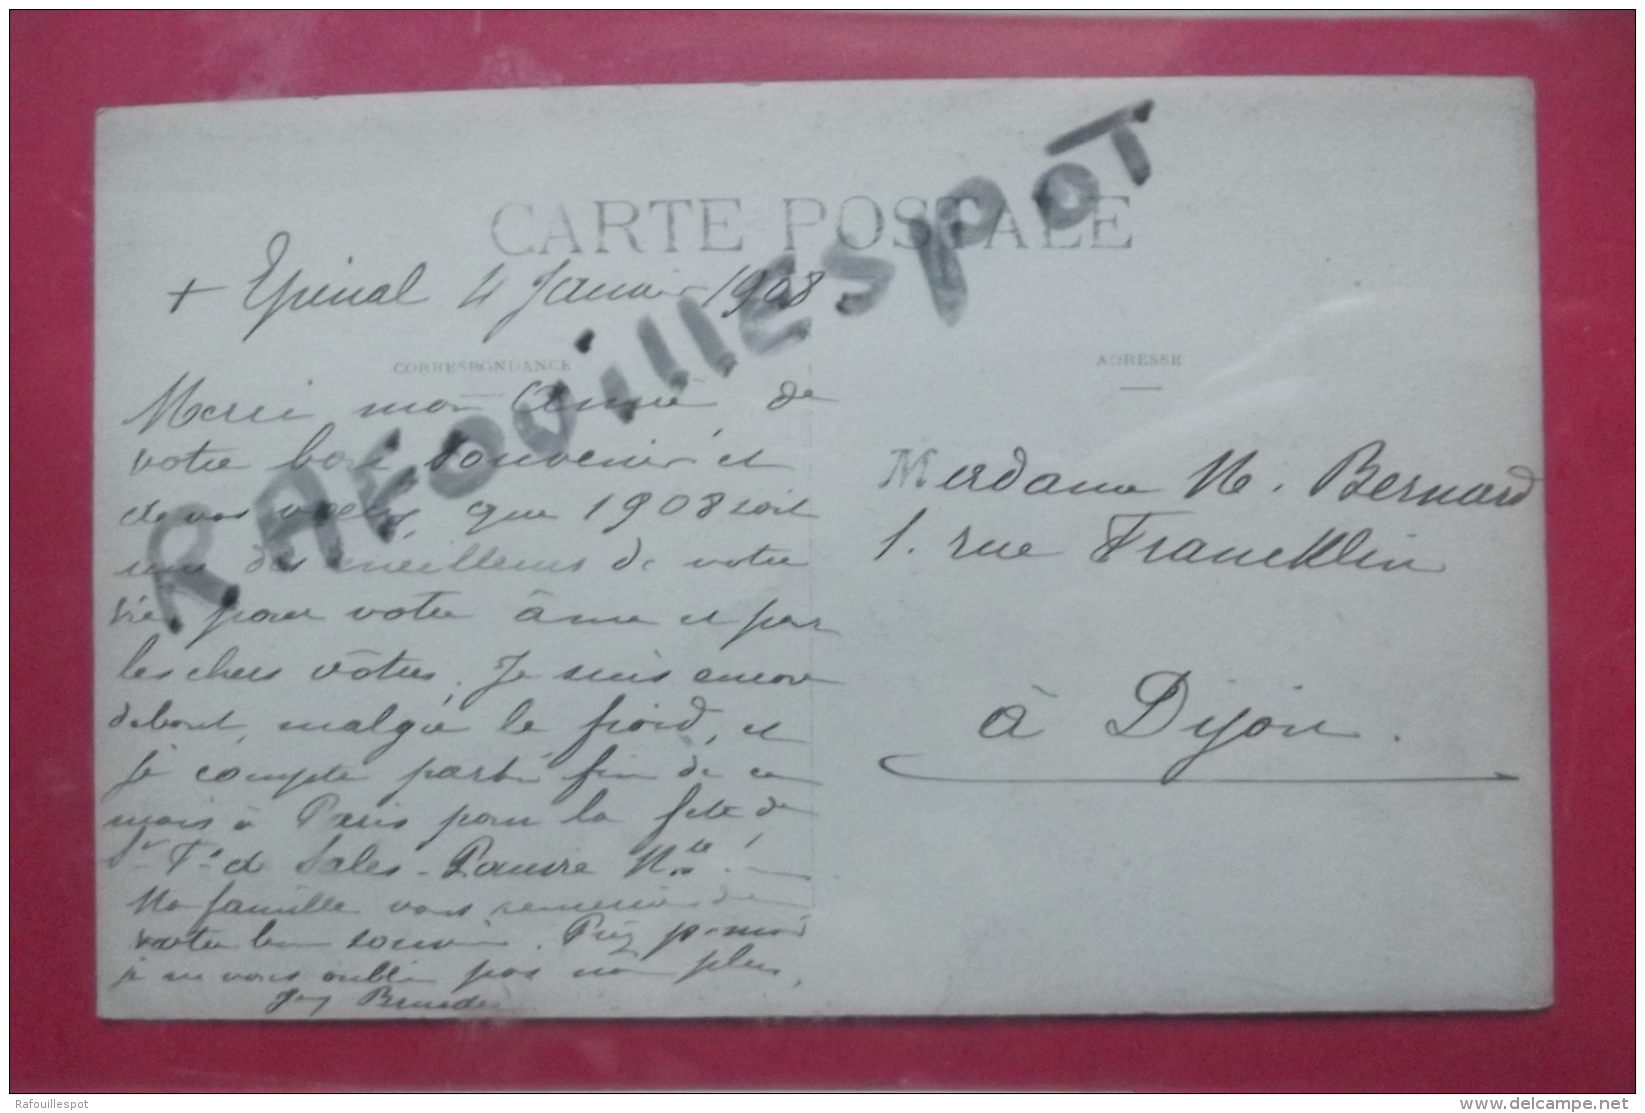 CARTE POSTALE
RAFOUILLESPOT
+ Epinal 4 Janvier 1908
CORRESPONDANCE
Merci mon Amie de
votre bon souvenir et
de vos vœux, que 1908 soit
une des meilleures de votre
vie, pour votre âme et par
les chers vôtres. Je suis encore
debout, malgré le froid, et
je compte partir fin de ce
mois à Paris pour la fête de
St Fs d Sales - Pauvre
Ma famille vous remercie de
votre bon souvenir. Priez p. moi
je ne vous oublie pas non plus,
ADRESSE
Madame N. Bernard
1. rue Francklin
à Dijon.
Rafouillespot
delcampe.net